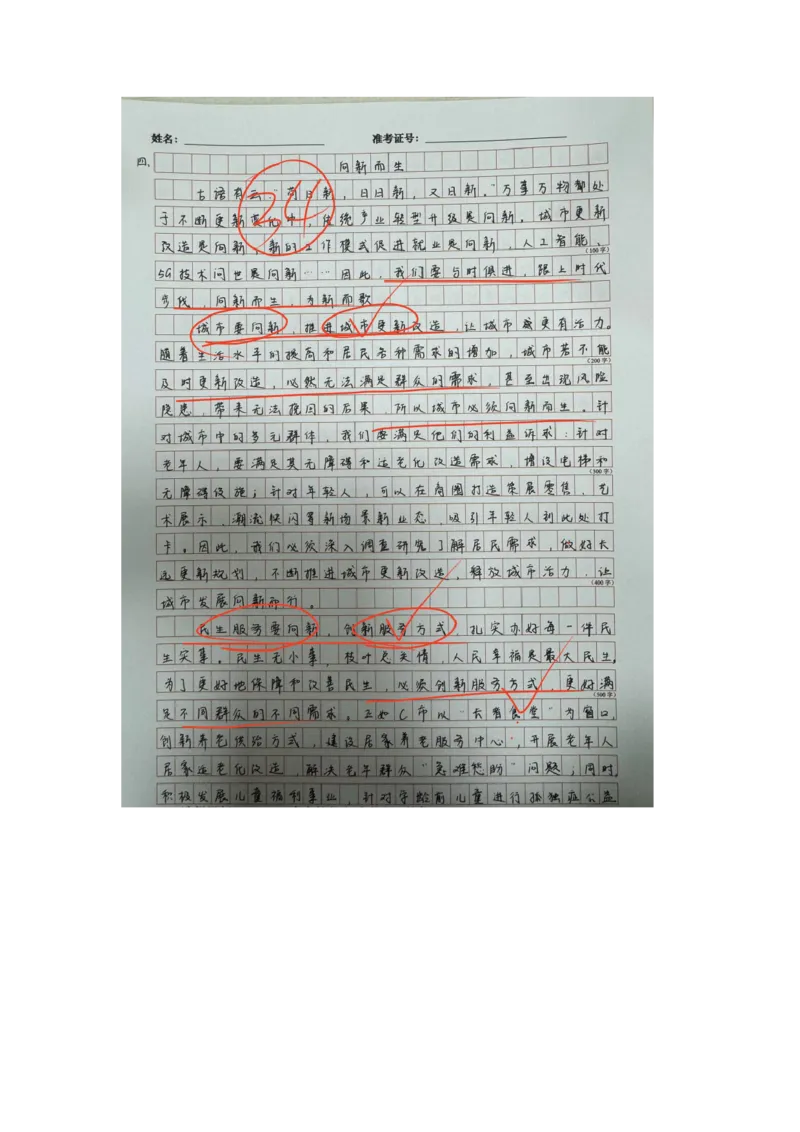 姓名： 准考证号：
四、 向新而生
古语有云："苟日新，日日新，又日新。"万事万物都处
于不断更新变化中，传统产业转型升级是向新，城市更新
改造是向新，新的工作模式促进就业是向新，人工智能、
（100字）
5G技术问世是向新……因此，我们要与时俱进，跟上时代
步伐，向新而生，为新而歌
城市要向新，推进城市更新改造，让城市或更有活力。
随着生活水平的提高和居民各种需求的增加，城市若不能
（200字）
及时更新改造，必然无法满足群众的需求，甚至出现风险
隐患，带来无法挽回的后果，所以城市必须向新而生。针
对城市中的多元群体，我们要满足他们的利益诉求：针对
老年人，要满足其无障碍和适老化改造需求，增设电梯和
（300字）
无障碍设施；针对年轻人，可以在商圈打造策展零售、艺
术展示、潮流快闪等新场景新业态，吸引年轻人到此处打
卡。因此，我们必须深入调查研究了解居民需求，做好长
远更新规划，不断推进城市更新改造，释放城市活力，让
（400字）
城市发展向新而行。
民生服务要向新，创新服务方式，扎实办好每一件民
生实事。民生无小事，枝叶总关情，人民幸福是最大民生。
为了更好地保障和改善民生，必须创新服务方式，更好满
（500字）
足不同群众的不同需求。正如C市以"长者食堂"为窗口，
创新养老供给方式，建设居家养老服务中心，开展老年人
居家适老化改造，解决老年群众"急难愁盼"问题；同时，
积极发展儿童福利事业，针对学龄前儿童进行孤独症公益
34